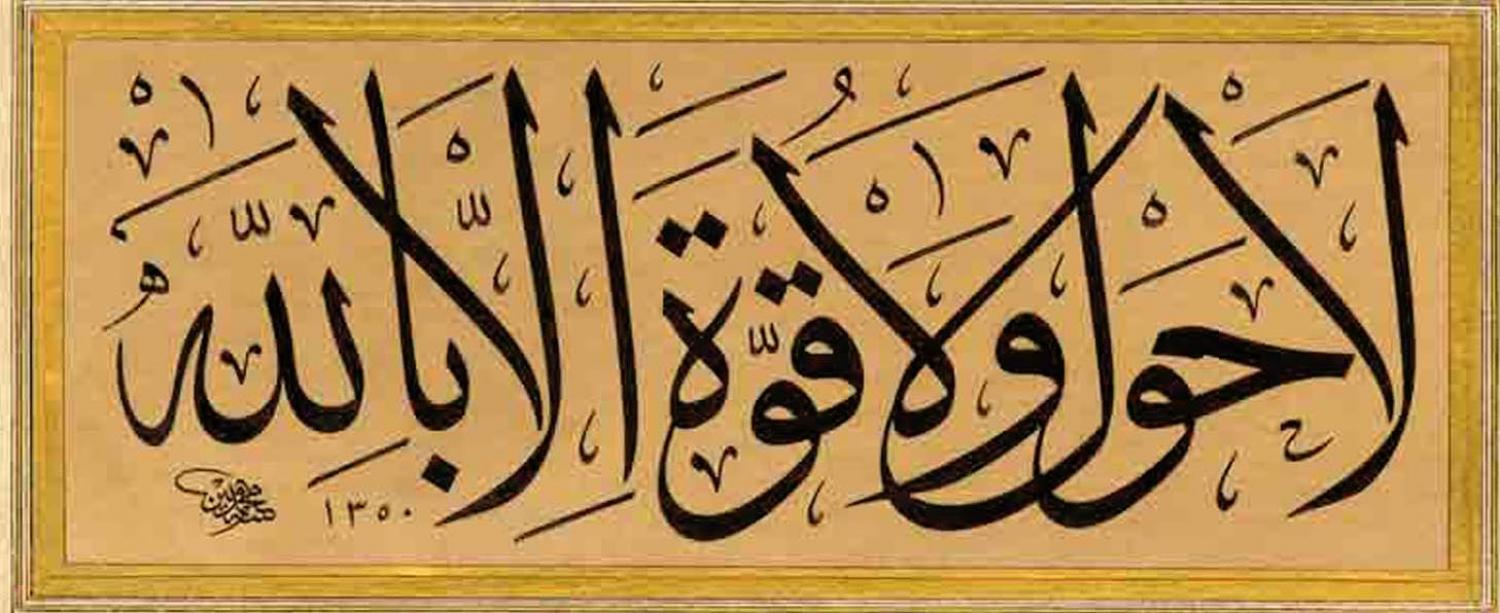 لا حول ولا قوّة الا بالله
١٣٥٠